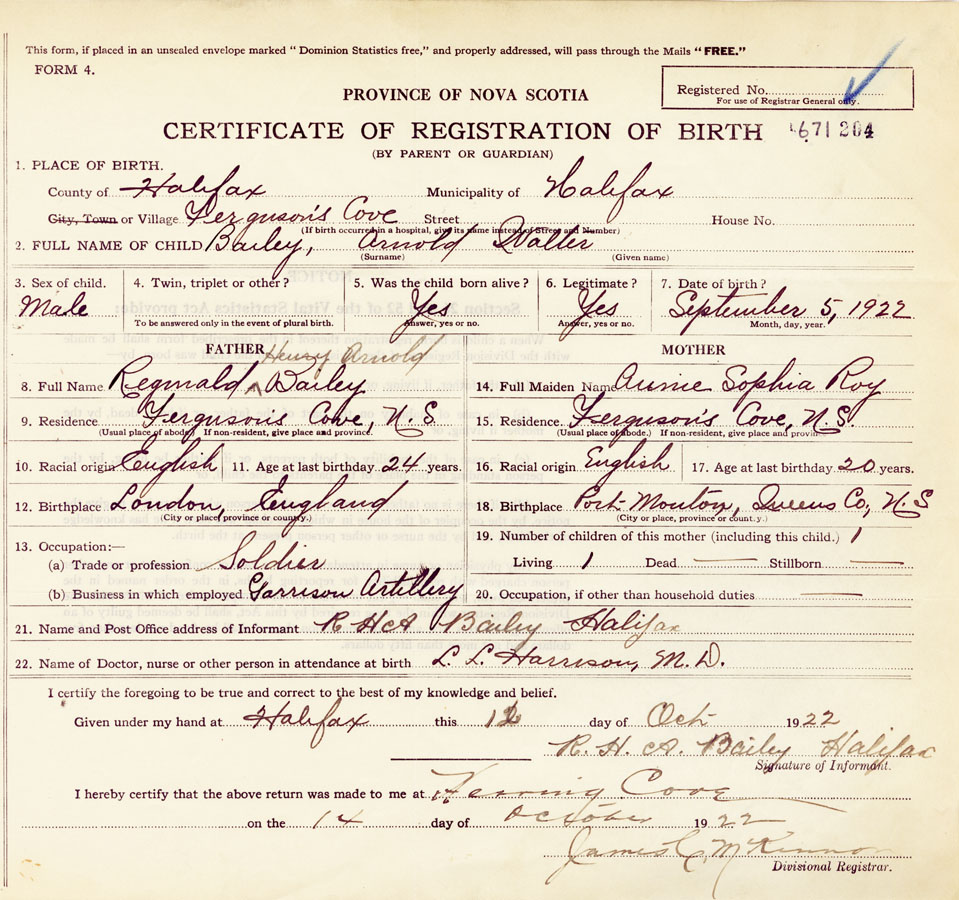 This form, if placed in an unsealed envelope marked "Dominion Statistics free," and properly addressed, will pass through the Mails "FREE."
FORM 4.
Registered No.
For use of Registrar General only.
PROVINCE OF NOVA SCOTIA
CERTIFICATE OF REGISTRATION OF BIRTH 671204
(BY PARENT OR GUARDIAN)
1. PLACE OF BIRTH.
County of Halifax Municipality of Halifax
City, Town or Village Ferguson's Cove Street House No.
(If birth occurred in a hospital, give its name instead of Street and Number)
2. FULL NAME OF CHILD Bailey, Arnold Walter
(Surname) (Given name)
3. Sex of child. 4. Twin, triplet or other? 5. Was the child born alive? 6. Legitimate? 7. Date of birth?
Male Yes Yes September 5, 1922
To be answered only in the event of plural birth. Answer, yes or no. Answer, yes or no. Month, day, year.
FATHER MOTHER
Henry Arnold
8. Full Name Reginald ^ Bailey 14. Full Maiden Name Annie Sophia Roy
9. Residence Ferguson's Cove, N.S 15. Residence Ferguson's Cove, N.S.
(Usual place of abode) If non-resident, give place and province. (Usual place of abode.) If non-resident, give place and provin
10. Racial origin English 11. Age at last birthday 24 years. 16. Racial origin English 17. Age at last birthday 20 years.
12. Birthplace London, England 18. Birthplace Port Mouton, Queens Co, N.S
(City or place, province or country.) (City or place, province or country.)
13. Occupation:— 19. Number of children of this mother (including this child.) 1
(a) Trade or profession Soldier Living 1 Dead — Stillborn —
(b) Business in which employed Garrison Artillery 20. Occupation, if other than household duties —
21. Name and Post Office address of Informant R H A Bailey Halifax
22. Name of Doctor, nurse or other person in attendance at birth L. L. Harrison, M.D.
I certify the foregoing to be true and correct to the best of my knowledge and belief.
Given under my hand at Halifax this 12 day of Oct 1922
R. H. A. Bailey Halifax
Signature of Informant.
I hereby certify that the above return was made to me at Herring Cove
on the 14 day of October 1922
James C. McKinnon
Divisional Registrar.